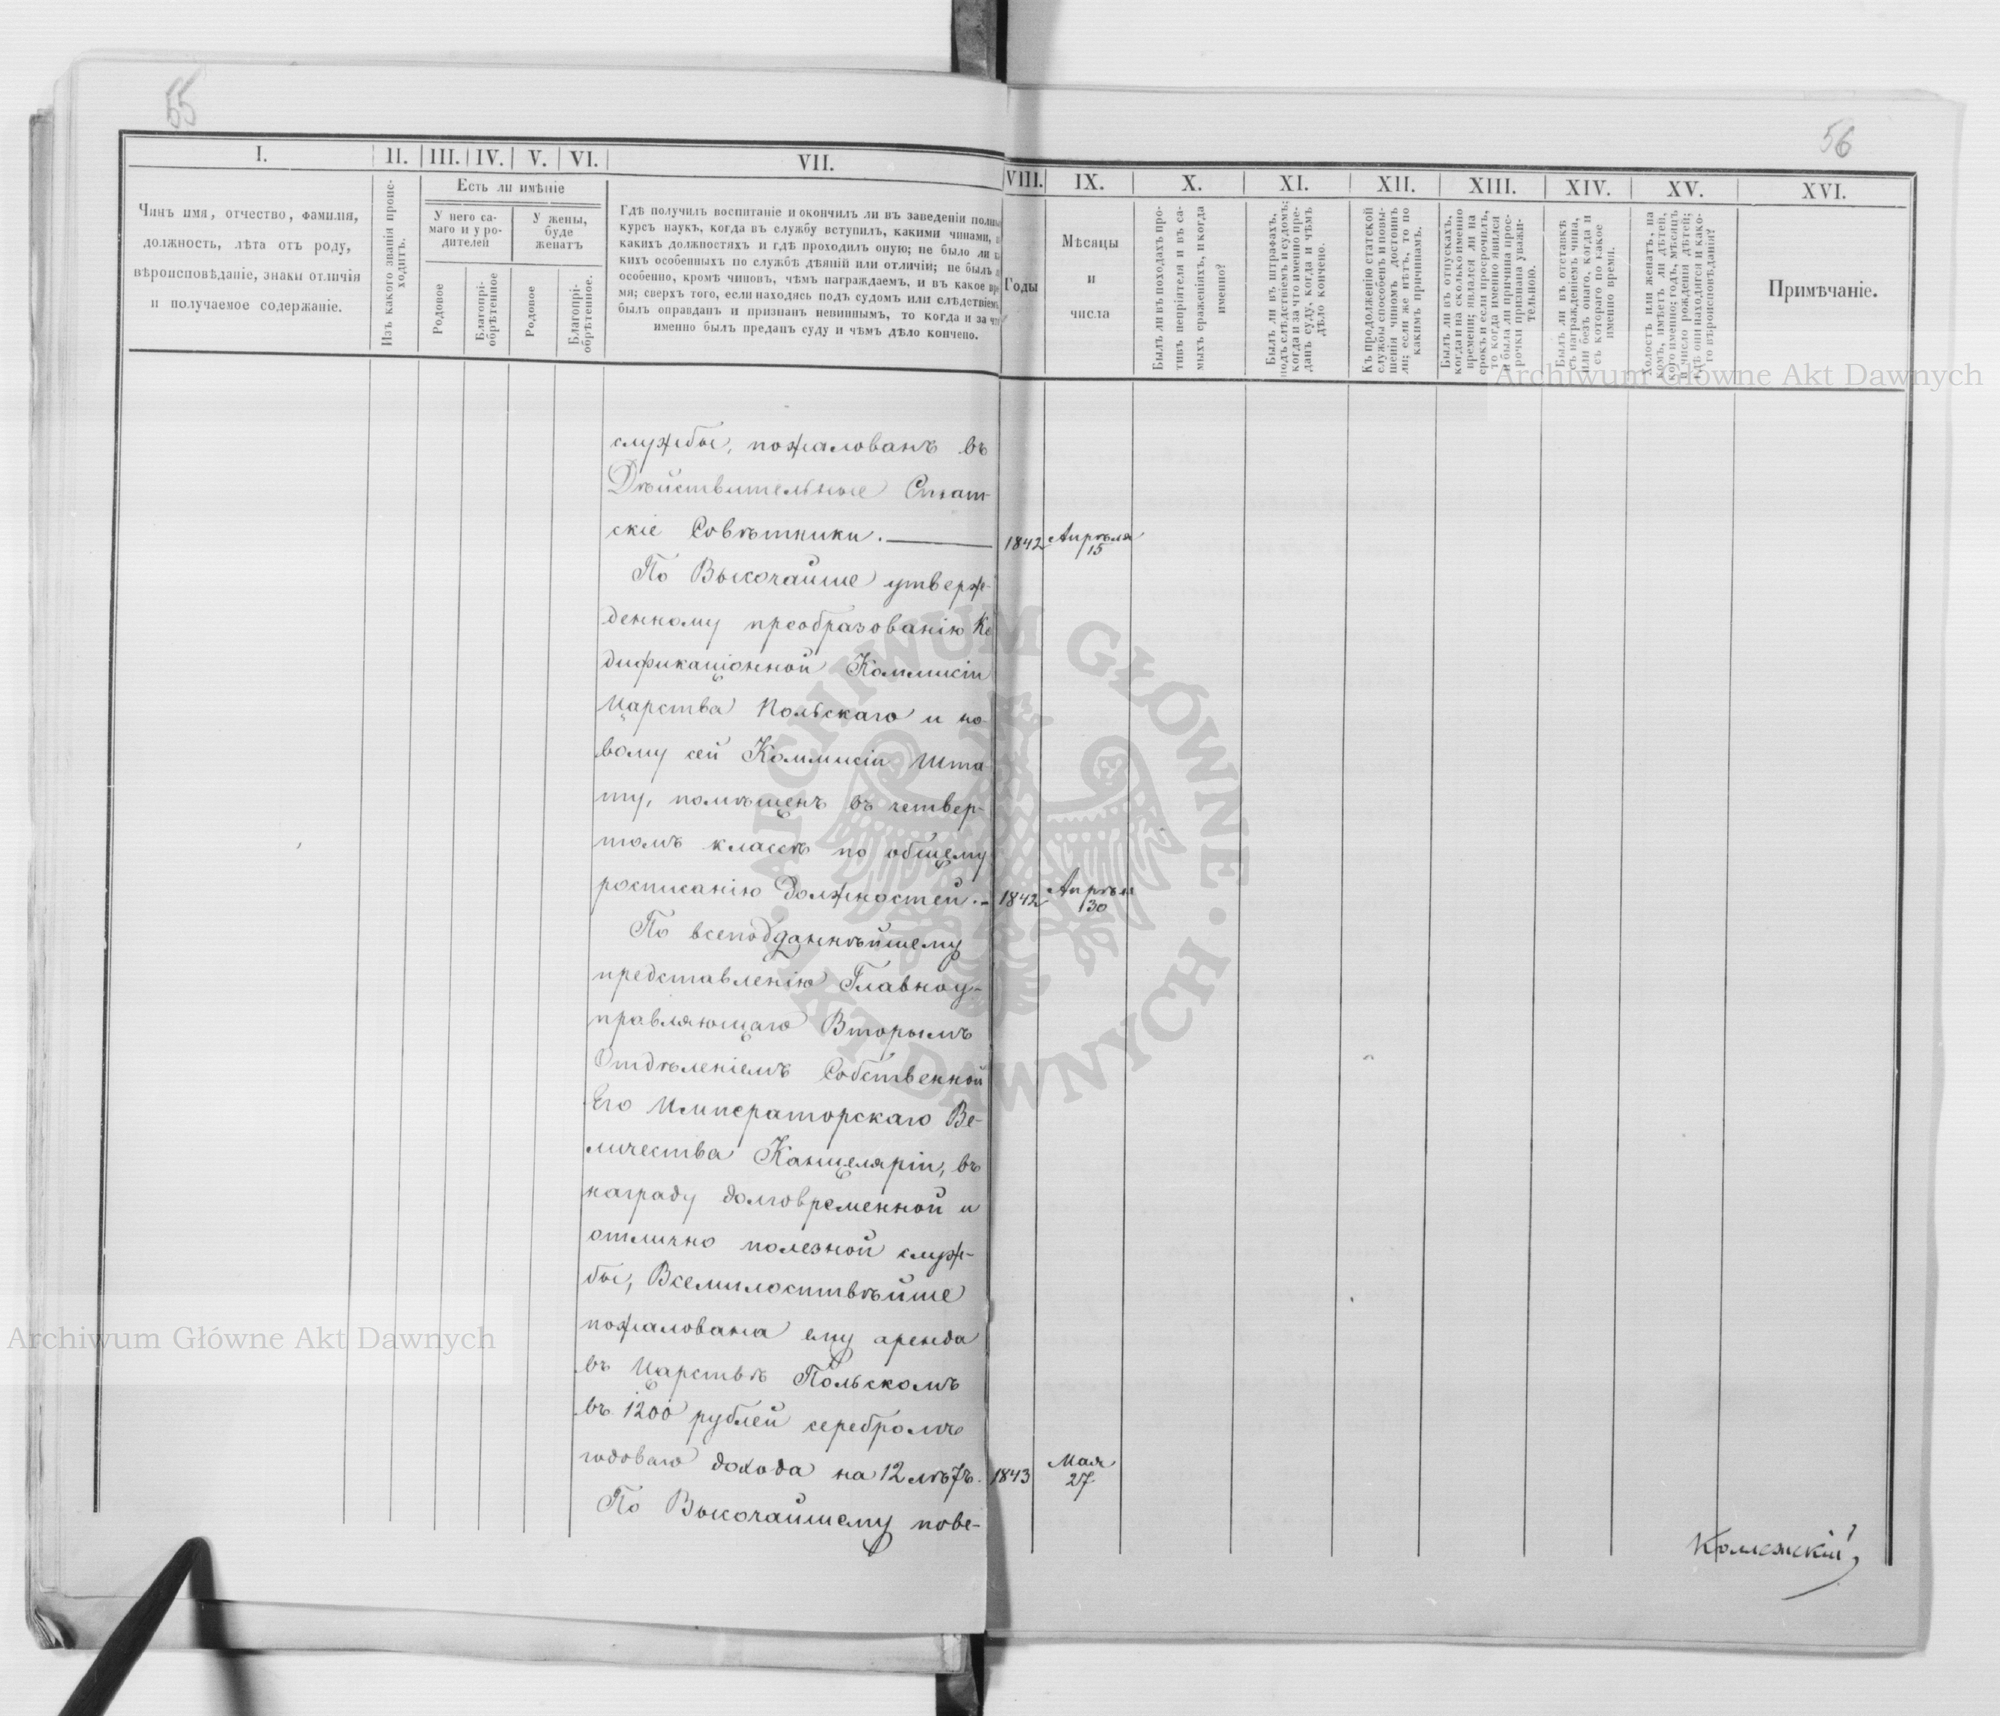 55
56
I.
II.
III.
IV.
V.
VI.
VII.
VIII.
IX.
X.
XI.
XII.
XIII.
XIV.
XV.
XVI.
Чинъ имя, отчество, фамилія,
должность, лѣта отъ роду,
вѣроисповѣданіе, знаки отличія
и получаемое содержаніе.
Изъ какого званія проис-
ходитъ.
Есть ли имѣніе
У него са-
маго и у ро-
дителей
У жены,
буде
женатъ
Родовое
Благопрі-
обрѣтенное
Родовое
Благопрі-
обрѣтенное.
Гдѣ получилъ воспитаніе и окончилъ ли въ заведеніи полный
курсъ наукъ, когда въ службу вступилъ, какими чинами, въ
какихъ должностяхъ и гдѣ проходилъ оную; не было ли ка-
кихъ особенныхъ по службѣ дѣяній или отличій; не былъ ли
особенно, кромѣ чиновъ, чѣмъ награждаемъ, и въ какое вре-
мя; сверхъ того, если находясь подъ судомъ или слѣдствіемъ,
былъ оправданъ и признанъ невиннымъ, то когда и за что
именно былъ преданъ суду и чѣмъ дѣло кончено.
Годы
Мѣсяцы
и
числа
Былъ ли въ походахъ про-
тивъ непріятеля и въ са-
мыхъ сраженіяхъ, и когда
именно?
Былъ ли въ штрафахъ,
подъ слѣдствіемъ и судомъ;
когда и за что именно пре-
данъ суду, когда и чѣмъ
дѣло кончено.
Къ продолженію статской
службы способенъ и повы-
шенія чиномъ достоинъ
ли; если же нѣтъ, то по
какимъ причинамъ.
Былъ ли въ отпускахъ,
когда и на сколько именно
времени; являлся ли на
срокъ и если просрочилъ,
то когда именно явился
и была ли причина прос-
рочки признана уважи-
тельною.
Былъ ли въ отставкѣ
съ награжденіемъ чина,
или безъ онаго, когда и
съ котораго по какое
именно время.
Холостъ или женатъ, на
комъ, имѣетъ ли дѣтей,
кого именно; годъ, мѣсяцъ
и число рожденія дѣтей;
гдѣ они находятся и како-
го вѣроисповѣданія?
Примѣчаніе.
службы, пожалованъ въ
Дѣйствительные Стат-
скіе Совѣтники. 1842 Апрѣля 15
По Высочайше утверж-
денному преобразованію Ко
дификаціонной Коммисіи
Царства Польскаго и но-
вому сей Коммисіи Шта-
ту, помѣщенъ въ четвер-
томъ классѣ по общему
росписанію должностей. 1842 Апрѣля 30
По всеподданнѣйшему
представленію Главноу-
правляющаго Вторымъ
Отдѣленіемъ Собственной
Его Императорскаго Ве-
личества Канцеляріи, въ
награду долговременной и
отлично полезной служ-
бы, Всемилостивѣйше
пожалована ему аренда
въ Царствѣ Польскомъ
въ 1200 рублей серебромъ
годоваго дохода на 12 лѣтъ. 1843 Мая 27
По Высочайшему пове-
Archiwum Główne Akt Dawnych
Archiwum Główne Akt Dawnych
ARCHIWUM GŁÓWNE · AKT DAWNYCH ·